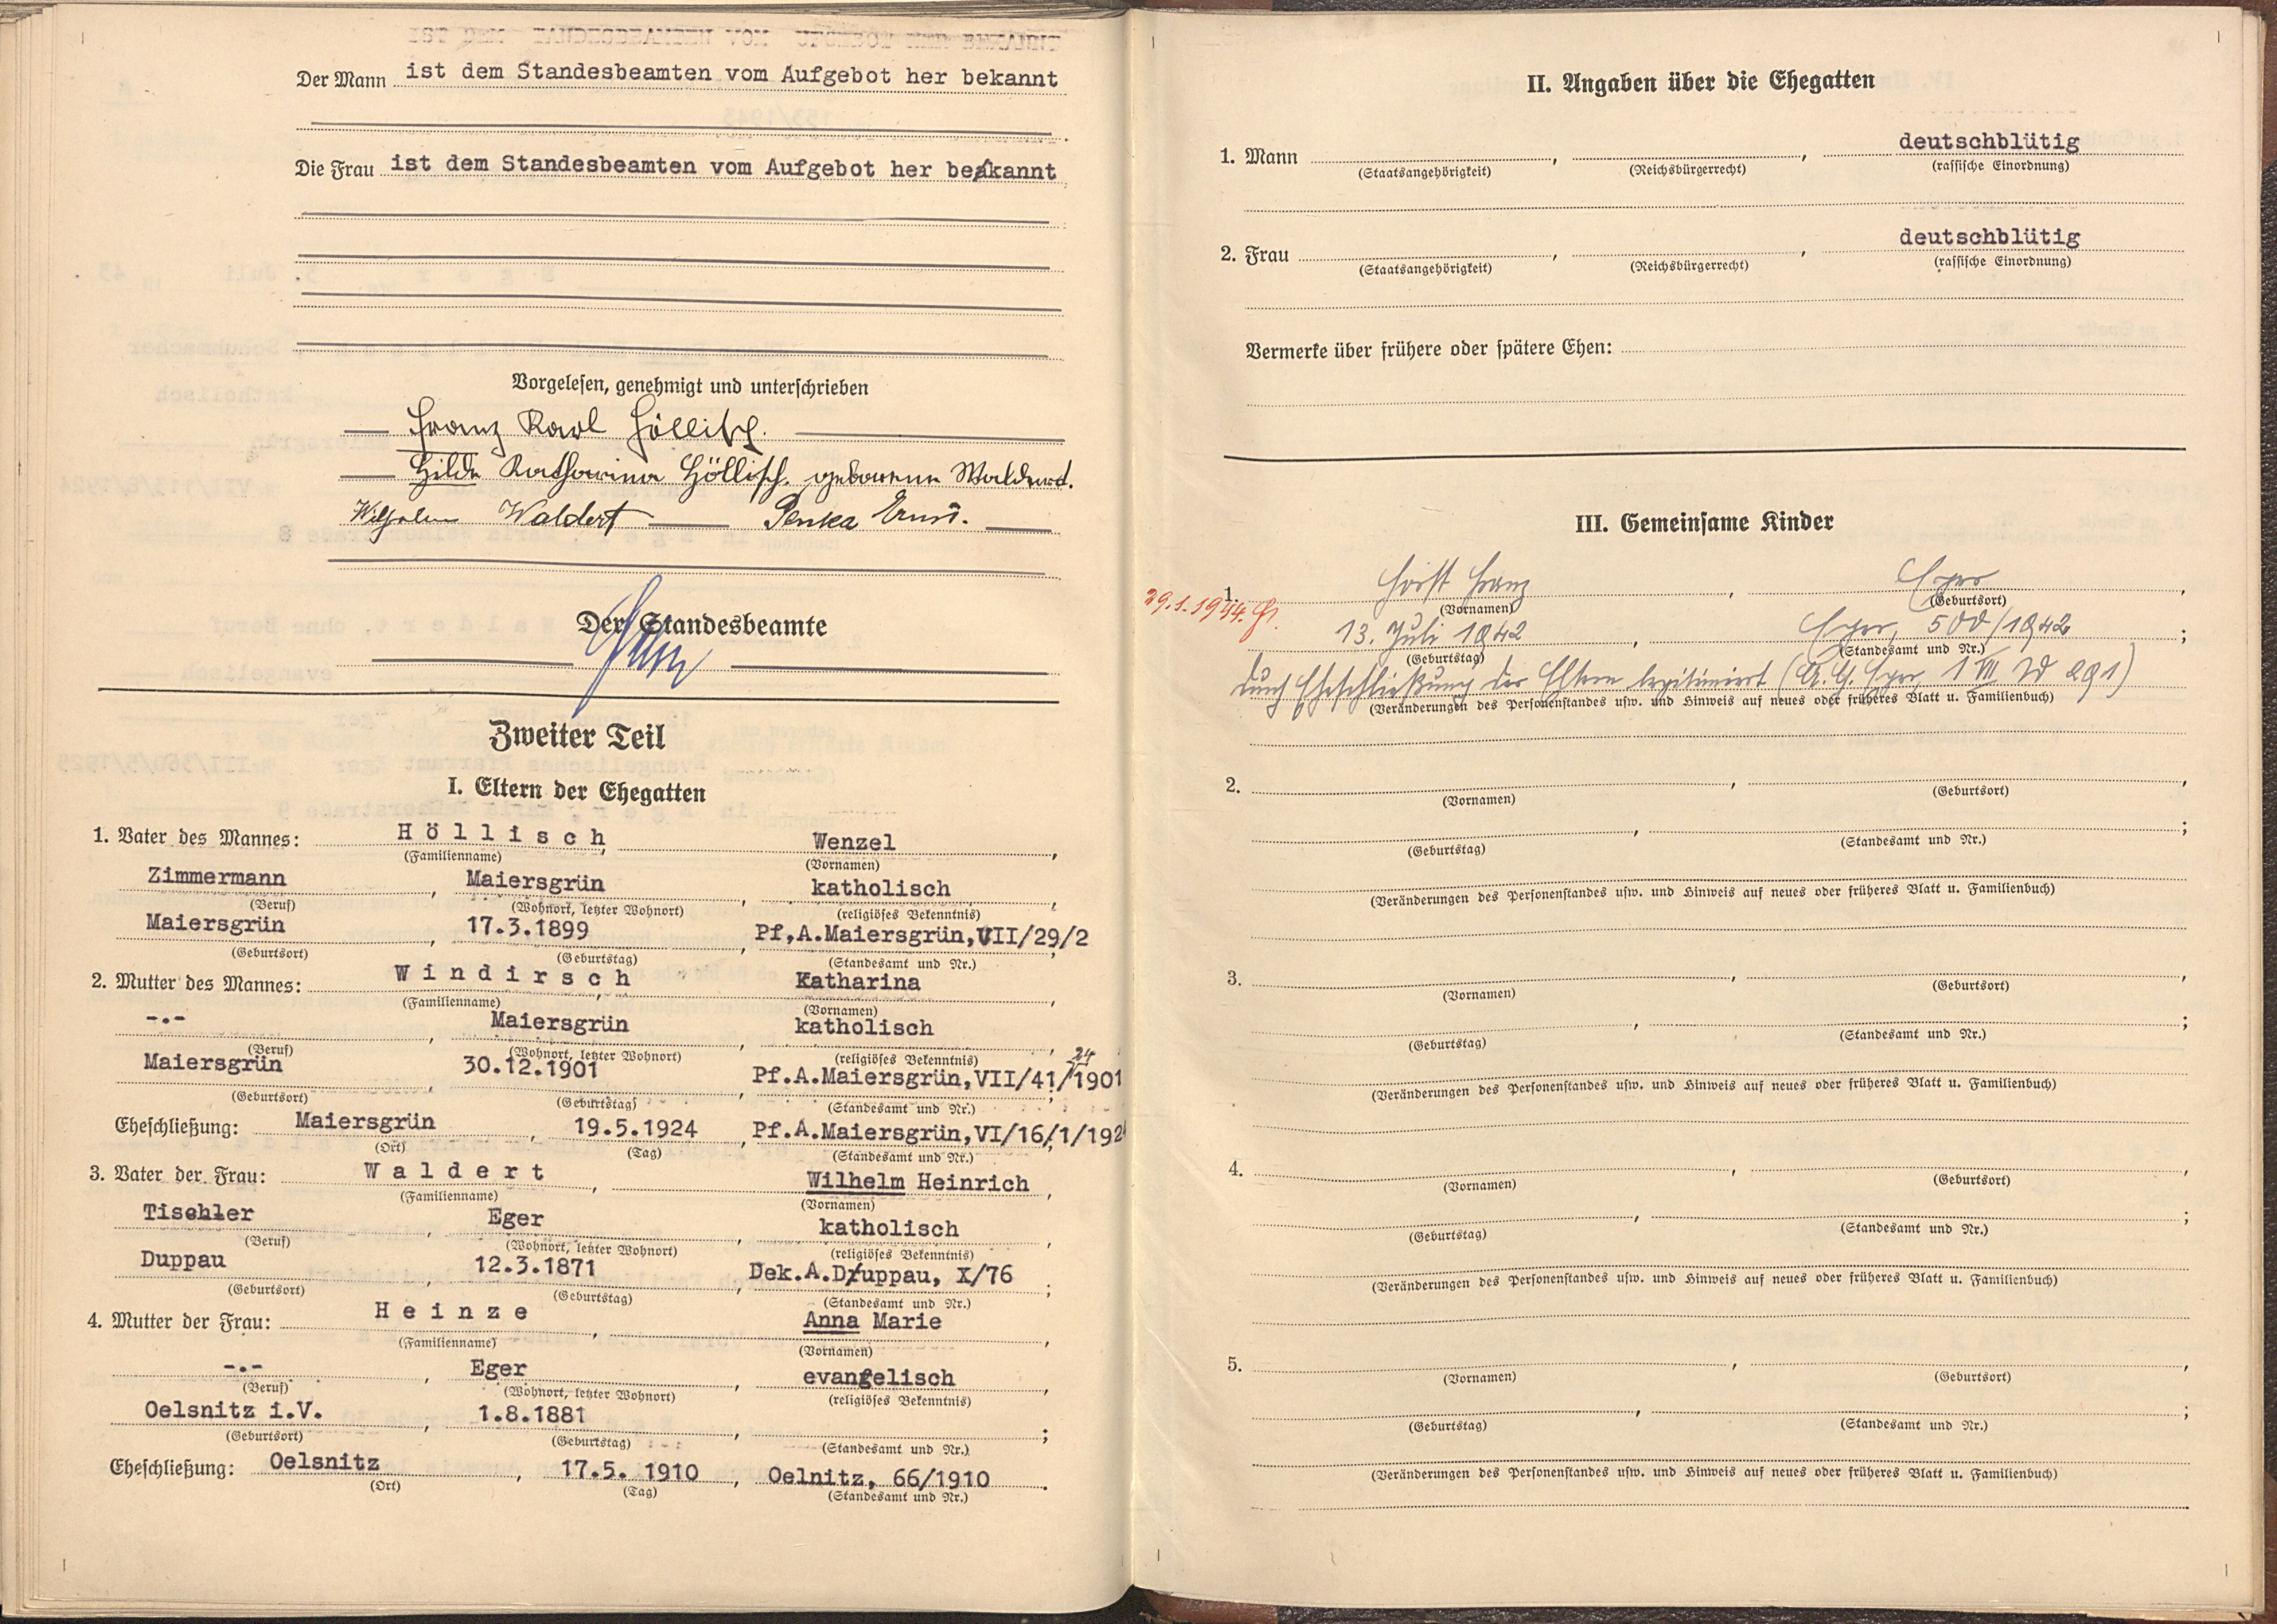 Der Mann ist dem Standesbeamten vom Aufgebot her bekannt
Die Frau ist dem Standesbeamten vom Aufgebot her bekannt
Vorgelesen, genehmigt und unterschrieben
Franz Karl Höllisch.
Hilde Katharina Höllisch. geborene Waldert.
Wilhelm Waldert Penka Ernst.
Der Standesbeamte
Zweiter Teil
I. Eltern der Ehegatten
1. Vater des Mannes: Höllisch, Wenzel,
(Familienname) (Vornamen)
Zimmermann, Maiersgrün, katholisch,
(Beruf) (Wohnort, letzter Wohnort) (religiöses Bekenntnis)
Maiersgrün, 17.3.1899, Pf,A.Maiersgrün,VII/29/2
(Geburtsort) (Geburtstag) (Standesamt und Nr.)
2. Mutter des Mannes: Windirsch, Katharina,
(Familienname) (Vornamen)
-.-, Maiersgrün, katholisch,
(Beruf) (Wohnort, letzter Wohnort) (religiöses Bekenntnis)
24
Maiersgrün, 30.12.1901, Pf.A.Maiersgrün,VII/41/1901;
(Geburtsort) (Geburtstag) (Standesamt und Nr.)
Eheschließung: Maiersgrün, 19.5.1924, Pf.A.Maiersgrün,VI/16/1/192
(Ort) (Tag) (Standesamt und Nr.)
3. Vater der Frau: Waldert, Wilhelm Heinrich,
(Familienname) (Vornamen)
Tischler, Eger, katholisch,
(Beruf) (Wohnort, letzter Wohnort) (religiöses Bekenntnis)
Duppau, 12.3.1871, Dek.A.Duppau, X/76;
(Geburtsort) (Geburtstag) (Standesamt und Nr.)
4. Mutter der Frau: Heinze, Anna Marie,
(Familienname) (Vornamen)
-.-, Eger, evangelisch,
(Beruf) (Wohnort, letzter Wohnort) (religiöses Bekenntnis)
Oelsnitz i.V., 1.8.1881,;
(Geburtsort) (Geburtstag) (Standesamt und Nr.)
Eheschließung: Oelsnitz, 17.5. 1910, Oelnitz, 66/1910.
(Ort) (Tag) (Standesamt und Nr.)
II. Angaben über die Ehegatten
1. Mann , , deutschblütig
(Staatsangehörigkeit) (Reichsbürgerrecht) (rassische Einordnung)
2. Frau , , deutschblütig
(Staatsangehörigkeit) (Reichsbürgerrecht) (rassische Einordnung)
Vermerke über frühere oder spätere Ehen:
III. Gemeinsame Kinder
29.1.1944.
1. Horst Franz, Eger,
(Vornamen) (Geburtsort)
13. Juli 1942, Eger, 500/1942;
(Geburtstag) (Standesamt und Nr.)
durch Eheschließung der Eltern legitimiert (A.G. Eger 1 VIII 291)
(Veränderungen des Personenstandes usw. und Hinweis auf neues oder früheres Blatt u. Familienbuch)
2. , ,
(Vornamen) (Geburtsort)
, ;
(Geburtstag) (Standesamt und Nr.)
(Veränderungen des Personenstandes usw. und Hinweis auf neues oder früheres Blatt u. Familienbuch)
3. , ,
(Vornamen) (Geburtsort)
, ;
(Geburtstag) (Standesamt und Nr.)
(Veränderungen des Personenstandes usw. und Hinweis auf neues oder früheres Blatt u. Familienbuch)
4. , ,
(Vornamen) (Geburtsort)
, ;
(Geburtstag) (Standesamt und Nr.)
(Veränderungen des Personenstandes usw. und Hinweis auf neues oder früheres Blatt u. Familienbuch)
5. , ,
(Vornamen) (Geburtsort)
, ;
(Geburtstag) (Standesamt und Nr.)
(Veränderungen des Personenstandes usw. und Hinweis auf neues oder früheres Blatt u. Familienbuch)